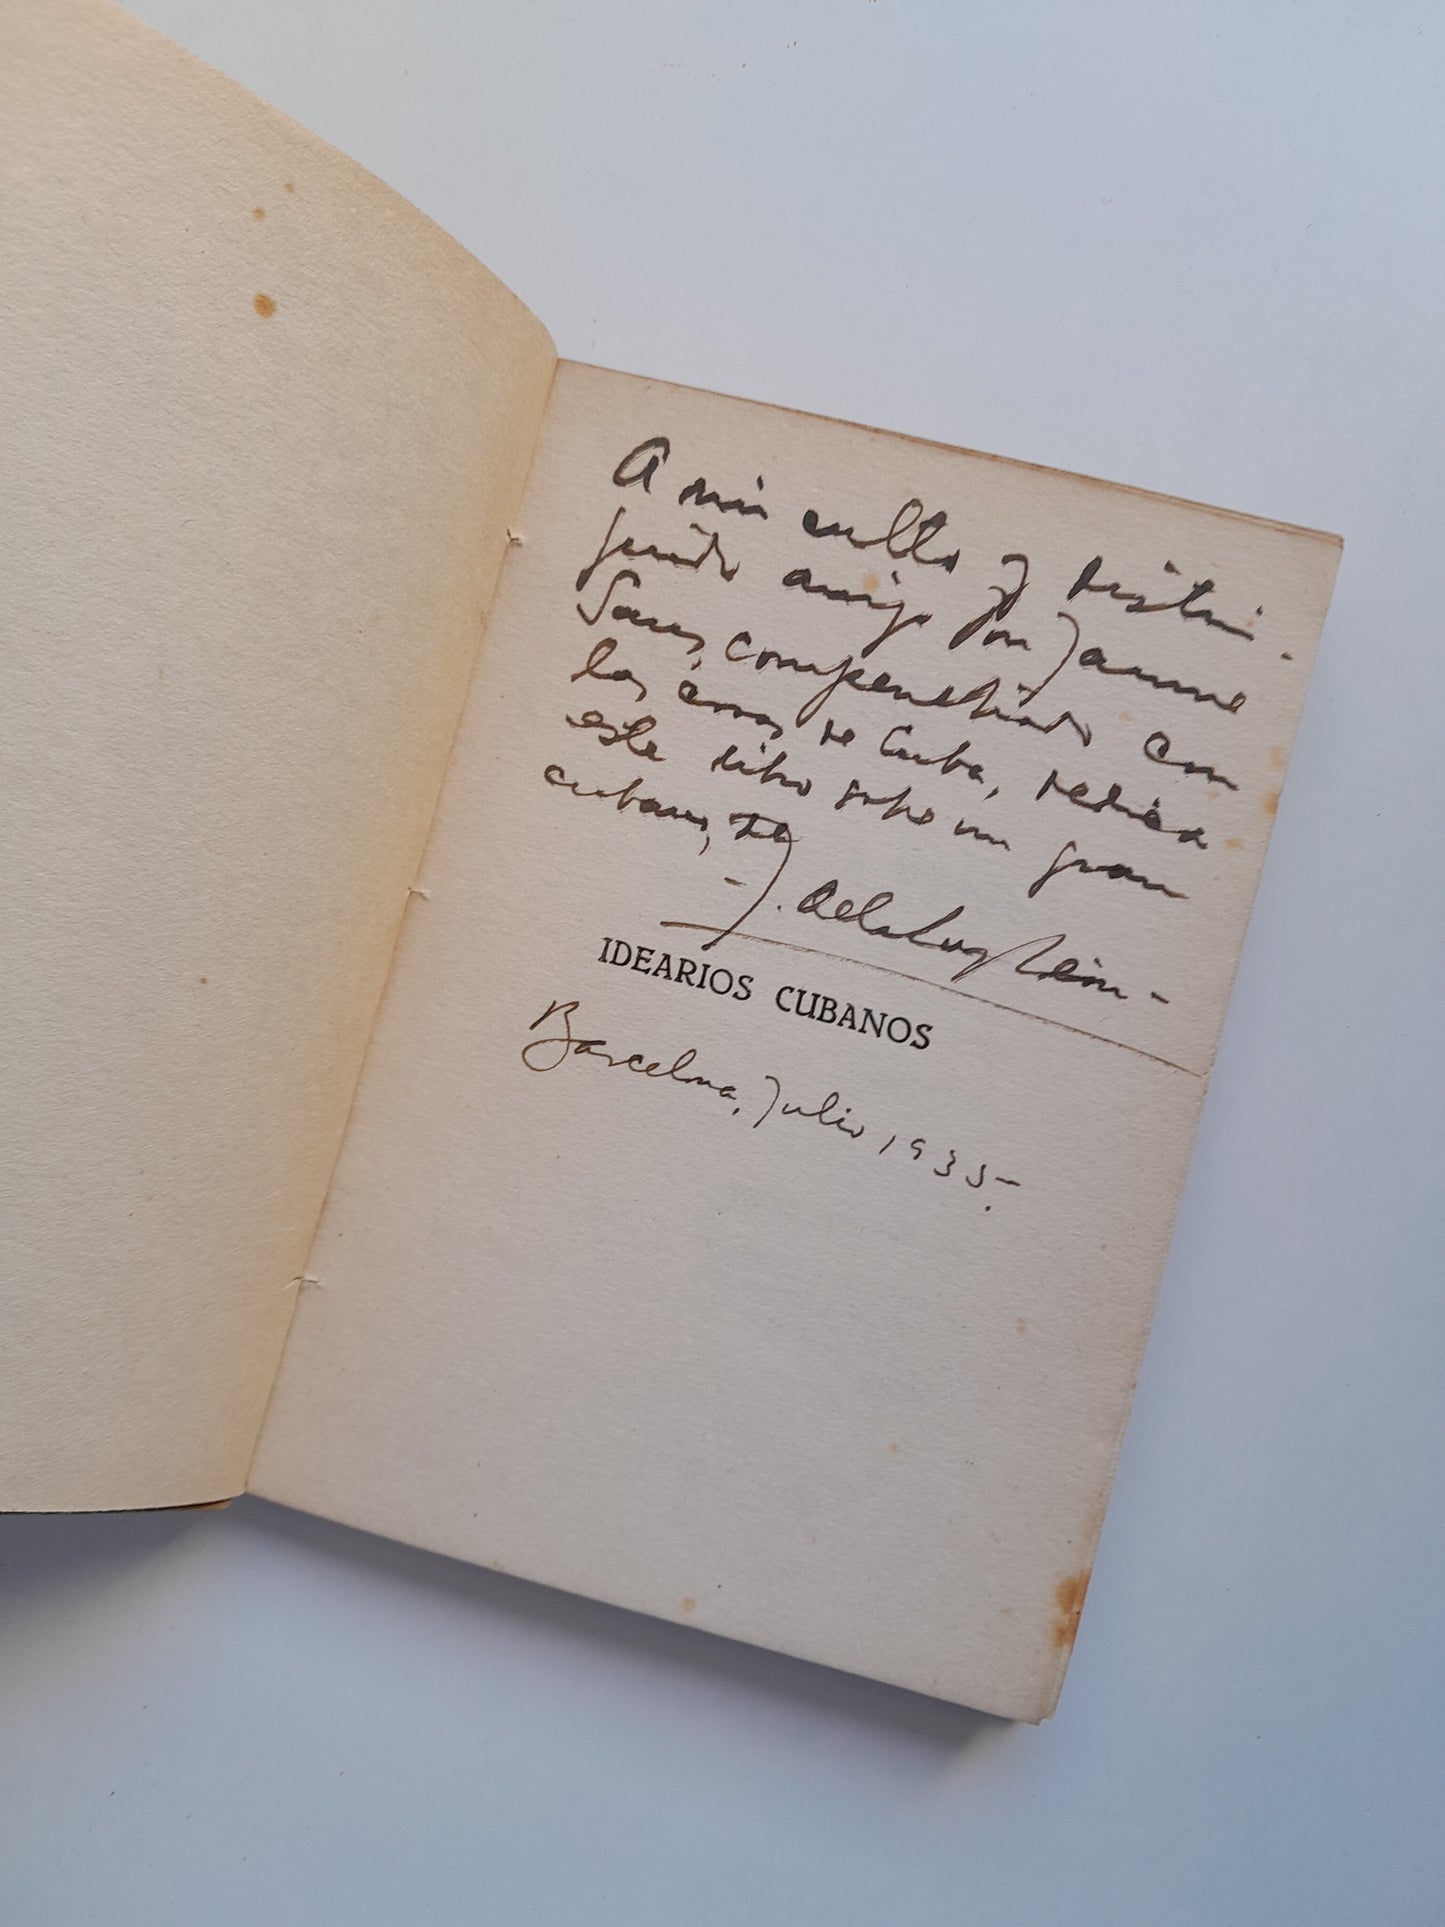 A mi culto y distin-
guido amigo Don Jaume
compenetrado con
las cosas de Cuba, dedica
este libro sobre un gran
cubano, de
IDEARIOS CUBANOS
Barcelona, Julio, 1935.